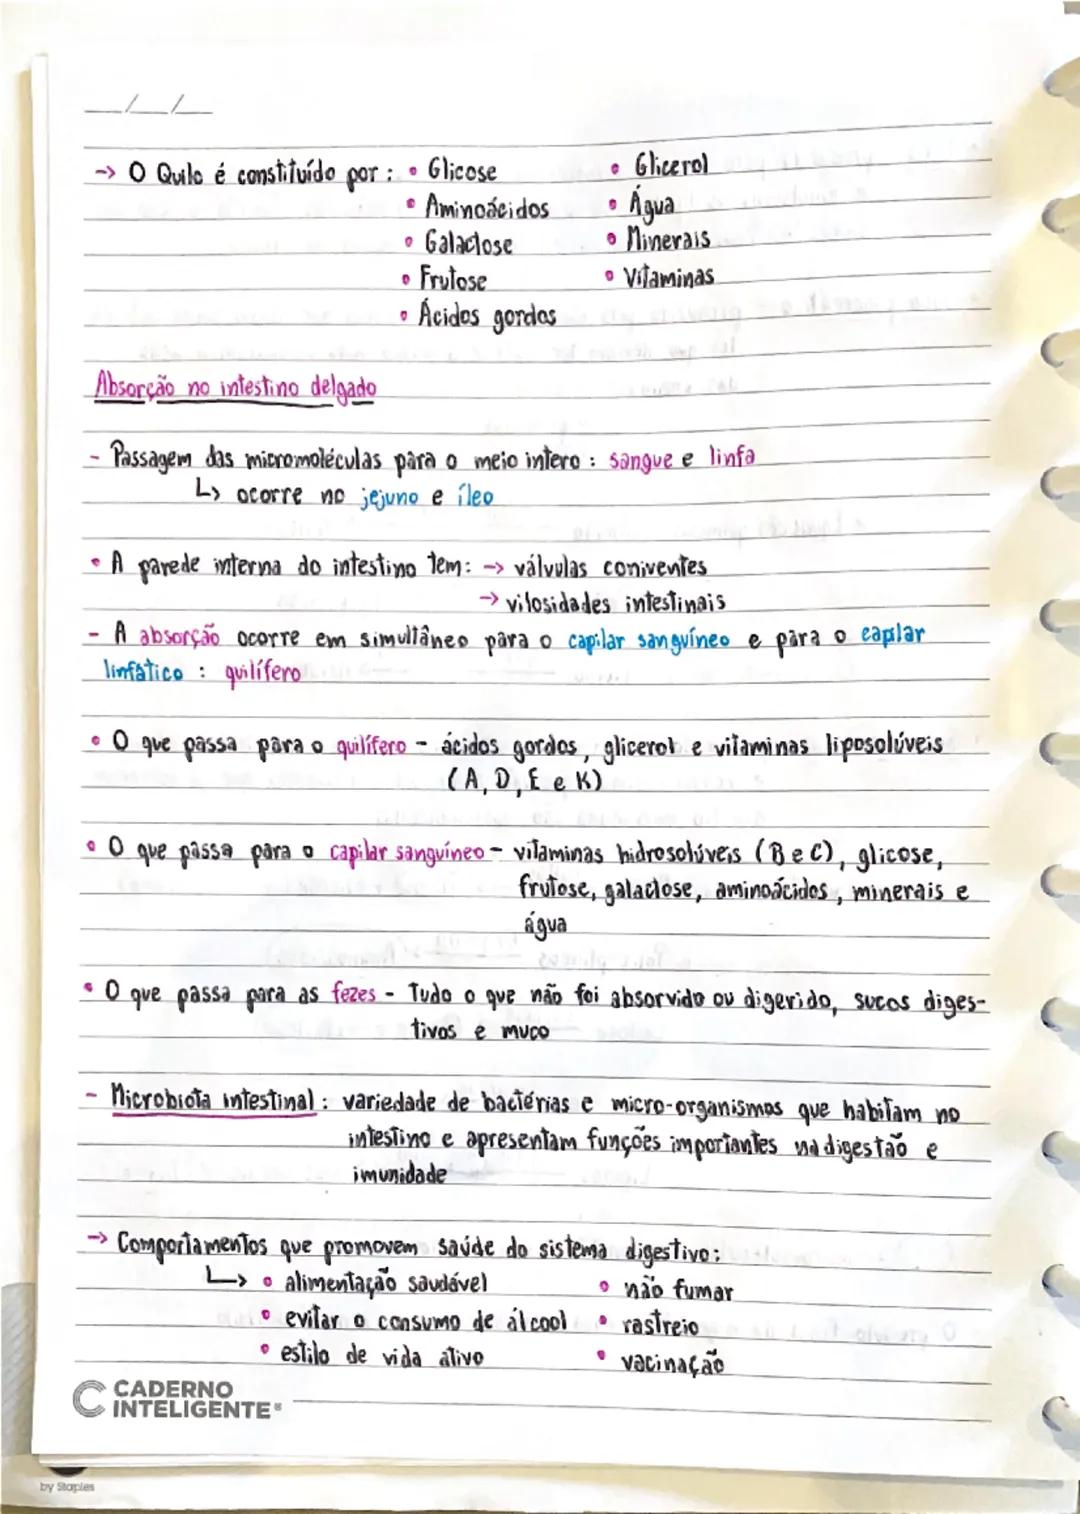 __/__/__
-> O Quilo é constituído por : • Glicose • Glicerol
• Aminoácidos • Água
• Galactose • Minerais
• Frutose • Vitaminas
• Ácidos gordos
Absorção no intestino delgado
- Passagem das micromoléculas para o meio intero : sangue e linfa
↳ ocorre no jejuno e íleo
• A parede interna do intestino tem: -> válvulas coniventes
-> vilosidades intestinais
- A absorção ocorre em simultâneo para o capilar sanguíneo e para o capilar
linfático : quilífero
• O que passa para o quilífero - ácidos gordos, glicerol e vitaminas liposolúveis
(A, D, E e K)
• O que passa para o capilar sanguíneo - vitaminas hidrosolúveis (B e C), glicose,
frutose, galactose, aminoácidos, minerais e
água
• O que passa para as fezes - Tudo o que não foi absorvido ou digerido, sucos diges-
tivos e muco
- Microbiota intestinal : variedade de bactérias e micro-organismos que habitam no
intestino e apresentam funções importantes na digestão e
imunidade
-> Comportamentos que promovem saúde do sistema digestivo:
↳ • alimentação saudável • não fumar
• evitar o consumo de álcool • rastreio
• estilo de vida ativo • vacinação
CADERNO
INTELIGENTE®
by Staples